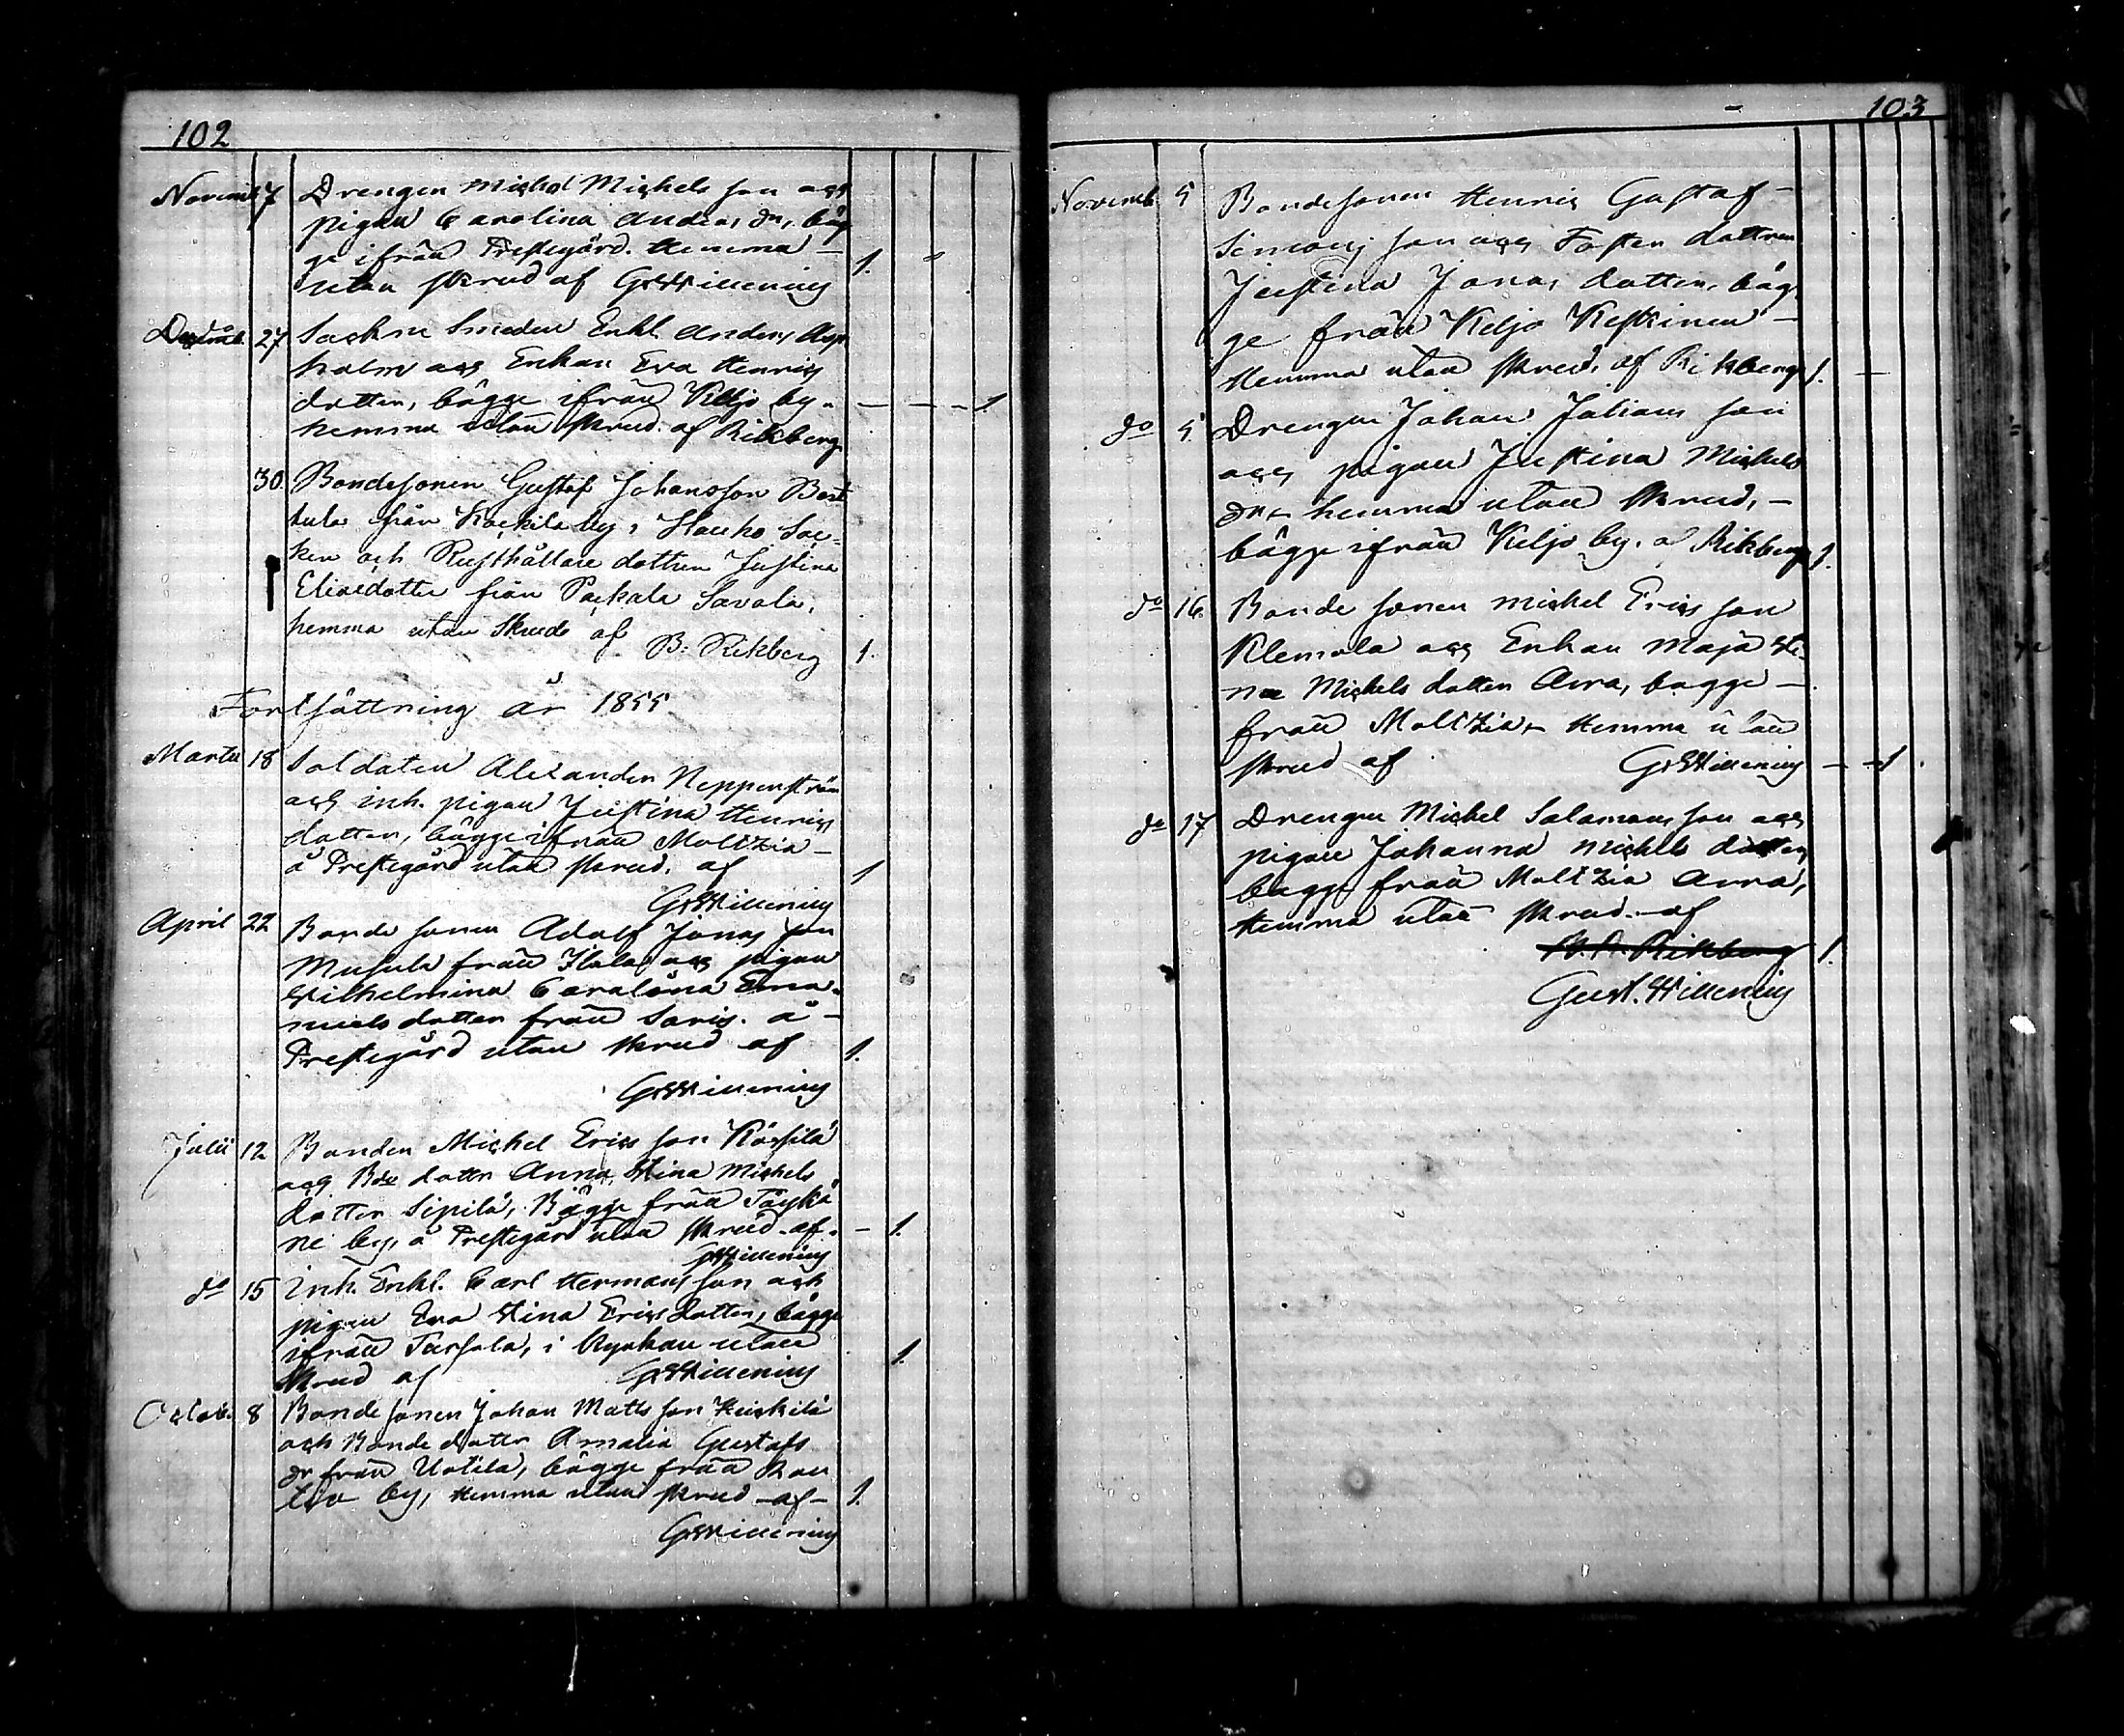 102
Novemb. 7 Drengen Michel Michels son och
pigan Carolina Anders dr, båg
ge ifrån Prestegård. Hemma
utan skrud af G. Willenius 1.
Decemb. 27 Sockne Smeden Enkl. Anders Asp
holm och Enkan Eva Henrics
dotter, bägge ifrån Keljo by.
hemma utan skrud. af Rikberg 1
30. Bondesonen Gustaf Johansson Bert
tula från Kockila by, Hauho Soc-
ken och Rusthållare dottren Justina
Eliædotter från Packala Savola,
hemma utan Skrud af
B: Rikberg 1.
Fortsättning år 1855
Martii 18 Soldaten Alexander Nepperström
och inh. pigan Justina Henrics
dotter, bägge ifrån Moltzia
å Prestegård utan skrud. af 1
G. Willenius
April 22 Bonde sonen Adolf Jonas son
Musula från Ilola och pigan
Wilhelmina Carolina Ema-
nuels dotter från Saris. å
Prestegård utan skrud af 1.
G. Willenius
Julii 12 Bonden Michel Erics son Kössilä
och Bde dottr Anna Stina Michels
dotter Sipilä, Bägge från
ne by, å Prestegård utan skrud af. 1.
G. Willenius
do 15 Inh. Enkl. Carl Hermans son och
pigan Eva Stina Erics dotter, bägge
ifrån i Kyrkan utan
skrud af G. Willenius 1.
Octob. 8 Bonde sonen Johan Matts son
och Bonde dottr Amalia Gustafs
dr från Uotila, bägge från
by, Hemma utan skrud af 1.
G. Willenius
103
Novemb. 5 Bondesonen Henric Gustaf
Simons son och Torpare dottren
Justina Jonas dotter, bäg-
ge från Keljo Keskinen
Hemma utan skrud. af Rikberg 1.
do 5. Drengen Johan Julians son
och pigan Justina Michels
dr hemma utan skrud,
bägge ifrån Keljo by. af Rikberg 1.
do 16. Bonde sonen Michel Erics son
Klemola och Enkan Maja Sti-
na Michels dotter Anra, bagge
från Moltzia Hemma utan
skrud af G. Willenius 1.
do 17 Drengen Michel Salamons son och
pigan Johanna Michels dotter
bagge från Moltzia Anra,
Hemma utan skrud. af
Rikberg 1.
Gust. Willenius